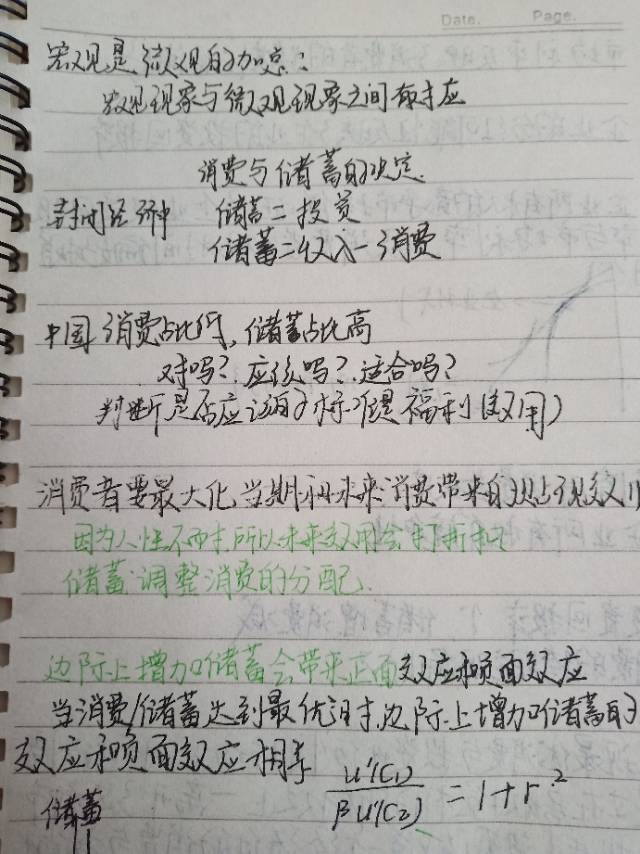 Date. Page.
宏观是微观的加总:
宏观现象与微观现象之间有对应
消费与储蓄的决定.
封闭经济中 储蓄=投资
储蓄=收入-消费
中国消费占比低,储蓄占比高
对吗?应该吗?适合吗?
判断是否应该的标准是福利(效用)
消费者要最大化当期和未来消费带来的总效
因为人性不耐,所以未来效用会打折扣
储蓄调整消费的分配.
边际上增加储蓄会带来正面效应和负面效应
当消费/储蓄达到最优时,边际上增加储蓄的
效应和负面效应相等 u'(C₁)/βu'(C₂) = 1+r
储蓄